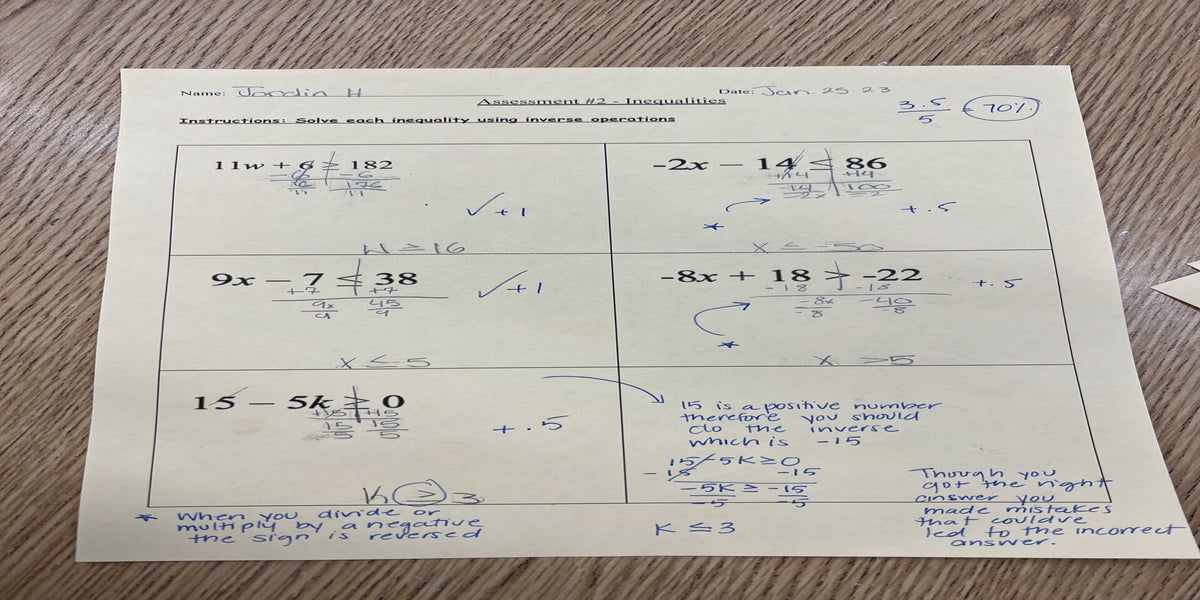 Name: Jordin H
Date: Jan. 25 23
Assessment #2 - Inequalities
3.5/5 = 70%
Instructions: Solve each inequality using inverse operations
11w + 6 ≥ 182
-6 -6
176
11 11
✓+1
W ≥ 16
-2x – 14 ≤ 86
+14 +14
100
-2x -2
* +.5
x ≤ -50
9x – 7 ≤ 38
+7 +7
9x 45
9 9
✓+1
x ≤ 5
-8x + 18 > -22
-18 -18
-8x -40
-8 -8
+.5
*
x >5
15 – 5k ≥ 0
+15 +15
15 15
-5 5
+.5
K ≥ 3
15 is a positive number
therefore you should
do the inverse
which is -15
15 - 5K ≥ 0
-15 -15
-5K ≥ -15
-5 -5
K ≤ 3
Though you
got the right
answer you
made mistakes
that couldve
led to the incorrect
answer.
* When you divide or
multiply by a negative
the sign is reversed